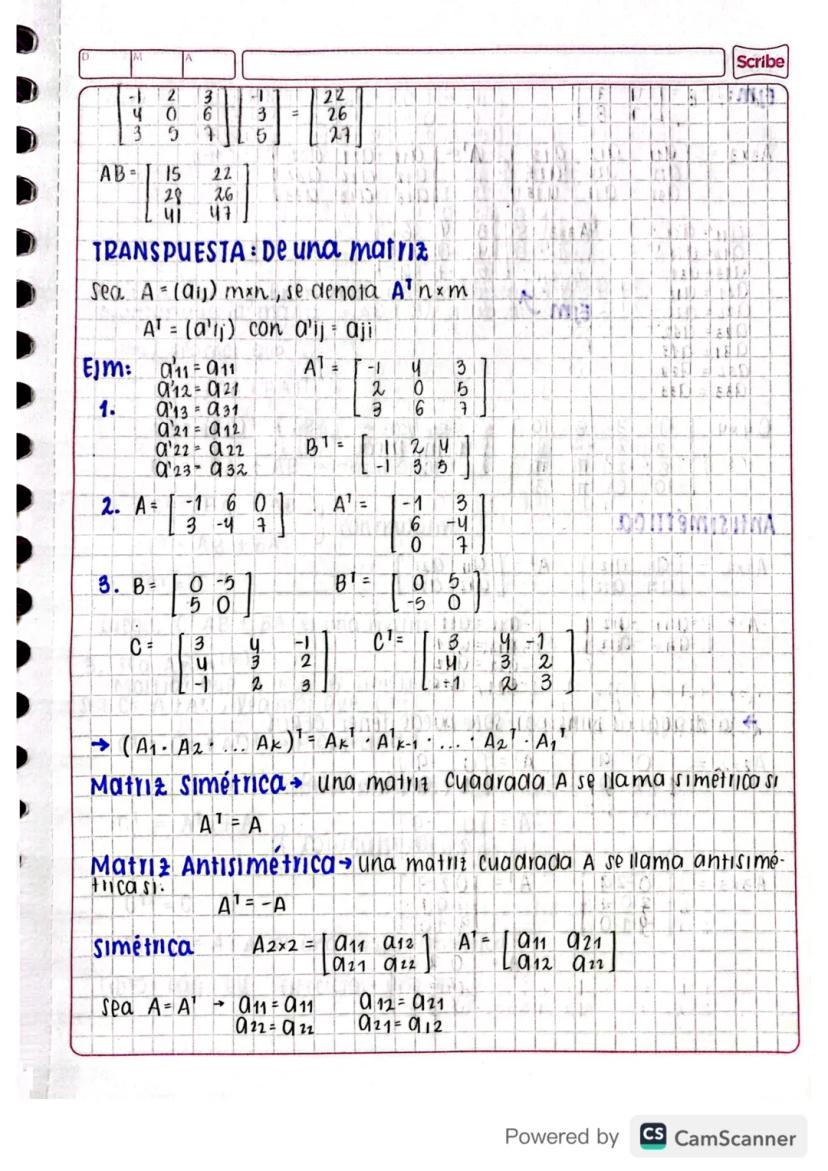 D M A
Scribe
[-1 2 3] [-1] = [22]
[4 0 6] [3] [26]
[3 5 7] [5] [27]
AB = [15 22]
[28 26]
[41 47]
TRANSPUESTA: De una matriz
sea A = (aij) m×n, se denota Aᵀ n×m
Aᵀ = (a'ij) con a'ij = aji
Ejm: a'11 = a11 Aᵀ = [-1 4 3]
a'12 = a21 [2 0 5]
1. a'13 = a31 [3 6 7]
a'21 = a12
a'22 = a22 Bᵀ = [1 2 4]
a'23 = a32 [-1 3 5]
2. A = [-1 6 0] Aᵀ = [-1 3]
[3 -4 7] [6 -4]
[0 7]
3. B = [0 -5] Bᵀ = [0 5]
[5 0] [-5 0]
C = [3 4 -1] Cᵀ = [3 4 -1]
[4 3 2] [4 3 2]
[-1 2 3] [-1 2 3]
→ (A1 · A2 · ... Ak)ᵀ = Akᵀ · Aᵀk-1 · ... · A2ᵀ · A1ᵀ
Matriz Simétrica → una matriz cuadrada A se llama simétrica si
Aᵀ = A
Matriz Antisimétrica → una matriz cuadrada A se llama antisimé-
trica si:
Aᵀ = -A
simétrica A2×2 = [a11 a12] Aᵀ = [a11 a21]
[a21 a22] [a12 a22]
sea A = Aᵀ → a11 = a11 a12 = a21
a22 = a22 a21 = a12
Powered by CS CamScanner